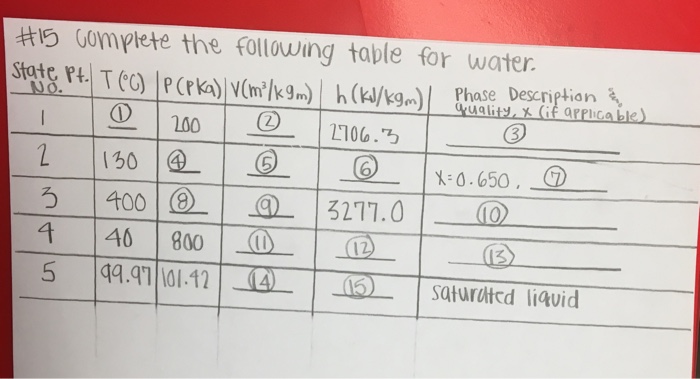 #15 Complete the following table for water.
State Pt. No. T (°C) P (PKa) V(m³/kgm) h (kJ/kgm) Phase Description & quality, x (if applicable)
1 ① 200 ② 2706.3 ③
2 130 ④ ⑤ ⑥ x=0.650, ⑦
3 400 ⑧ ⑨ 3277.0 ⑩
4 40 800 ⑪ ⑫ ⑬
5 99.97 101.42 ⑭ ⑮ saturated liquid